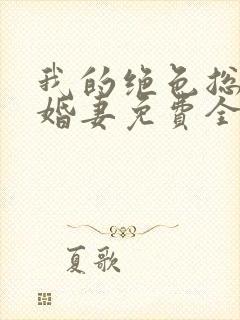 我的绝色总
婚妻免費全
夏歌